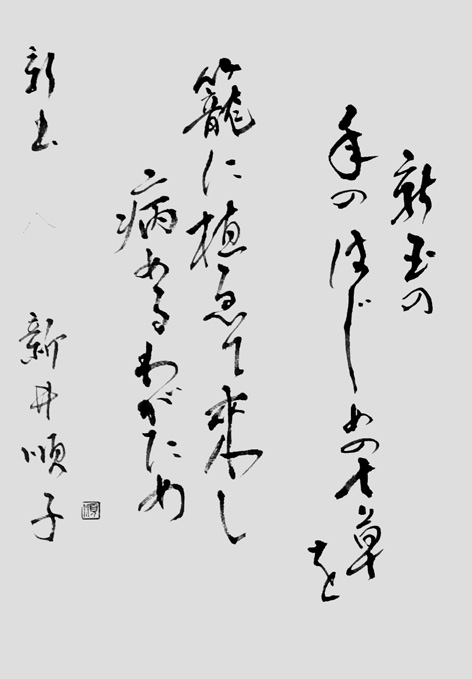 新玉の
年のはじめの七草
を
籠に植ゑて來し
病めるわがため
新玉
新井順子